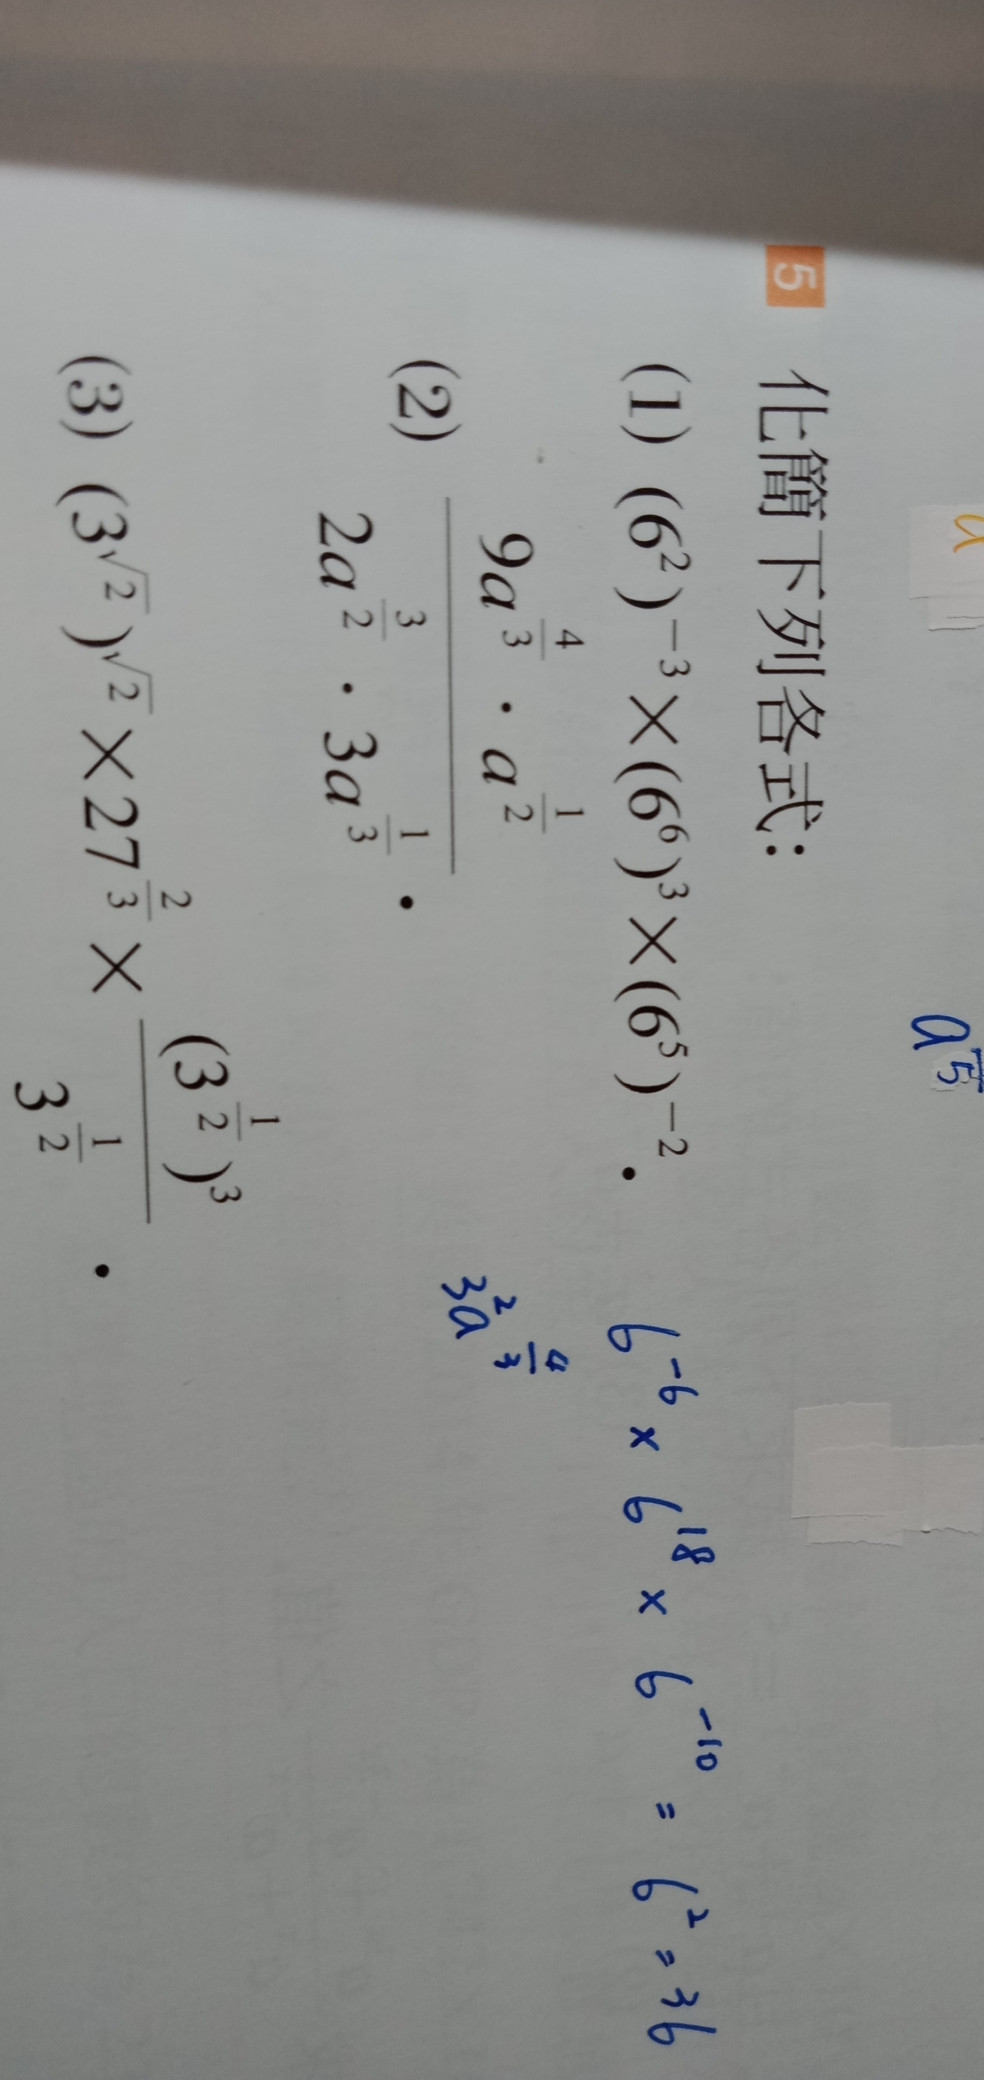 a
a^5
5 化簡下列各式：
(1) (6²)⁻³×(6⁶)³×(6⁵)⁻². 6⁻⁶ × 6¹⁸ × 6⁻¹⁰ = 6² = 36
(2) \frac{9a^{\frac{4}{3}} · a^{\frac{1}{2}}}{2a^{\frac{3}{2}} · 3a^{\frac{1}{3}}}. 3a^{2\frac{4}{3}}
(3) (3^{\sqrt{2}})^{\sqrt{2}}×27^{\frac{2}{3}}×\frac{(3^{\frac{1}{2}})^3}{3^{\frac{1}{2}}}.